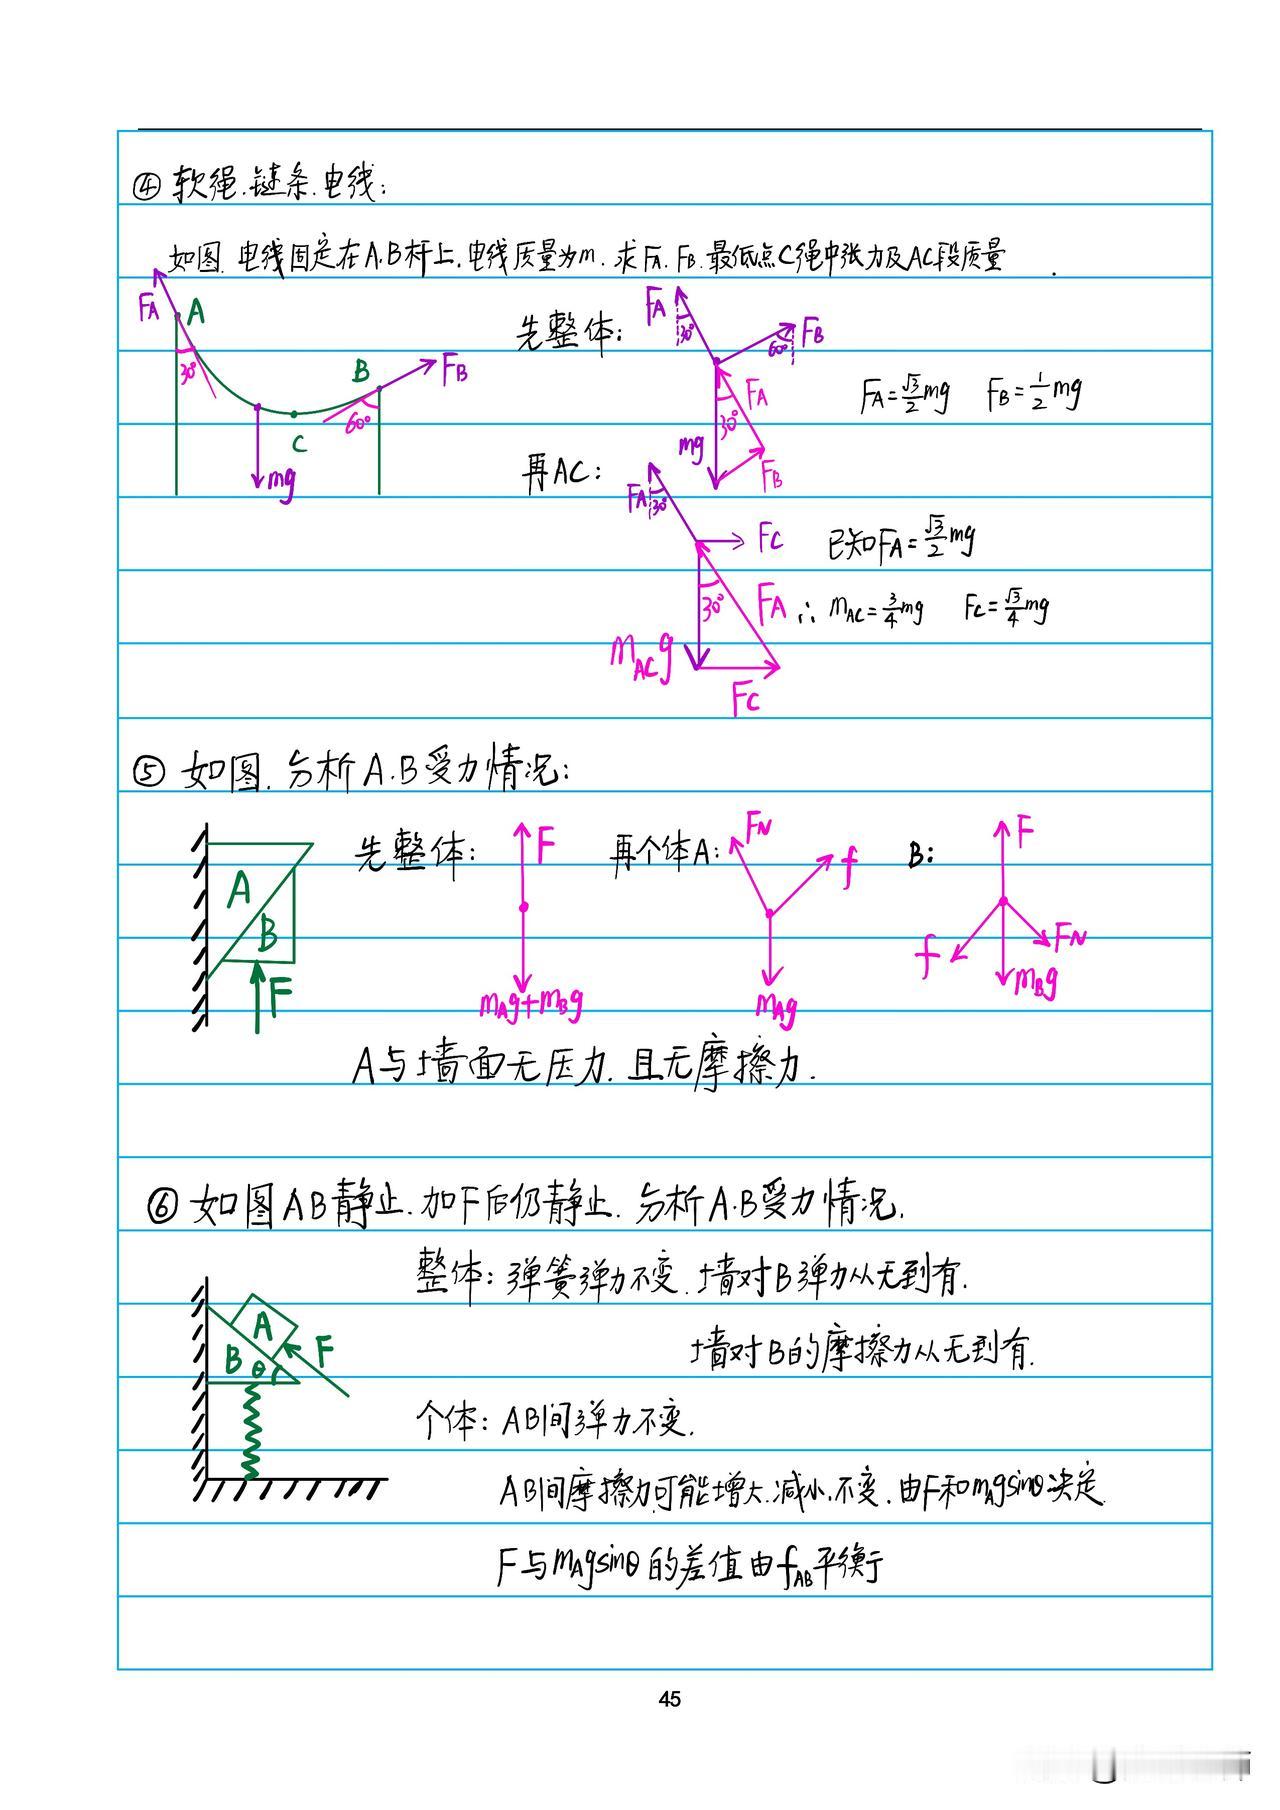 ④ 软绳.链条.电线:
如图.电线固定在A.B杆上.电线质量为m.求FA.FB.最低点C绳中张力及AC段质量.
FA A 30° mg C B 60° FB
先整体: FA 30° FB 60° mg 30° FA FB
FA=√3/2mg FB=1/2mg
再AC: FA 30° FC mACg 30° FA FC
已知FA=√3/2mg
∴ mAC=3/4mg FC=√3/4mg
⑤ 如图.分析A.B受力情况:
A B F
先整体: F mAg+mBg 再个体A: FN f mAg B: F f FN mBg
A与墙面无压力.且无摩擦力.
⑥ 如图AB静止.加F后仍静止.分析A.B受力情况.
A B θ F
整体: 弹簧弹力不变.墙对B弹力从无到有.
墙对B的摩擦力从无到有.
个体: AB间弹力不变.
AB间摩擦力可能增大.减小.不变.由F和mAgsinθ决定.
F与mAgsinθ的差值由fAB平衡于
45